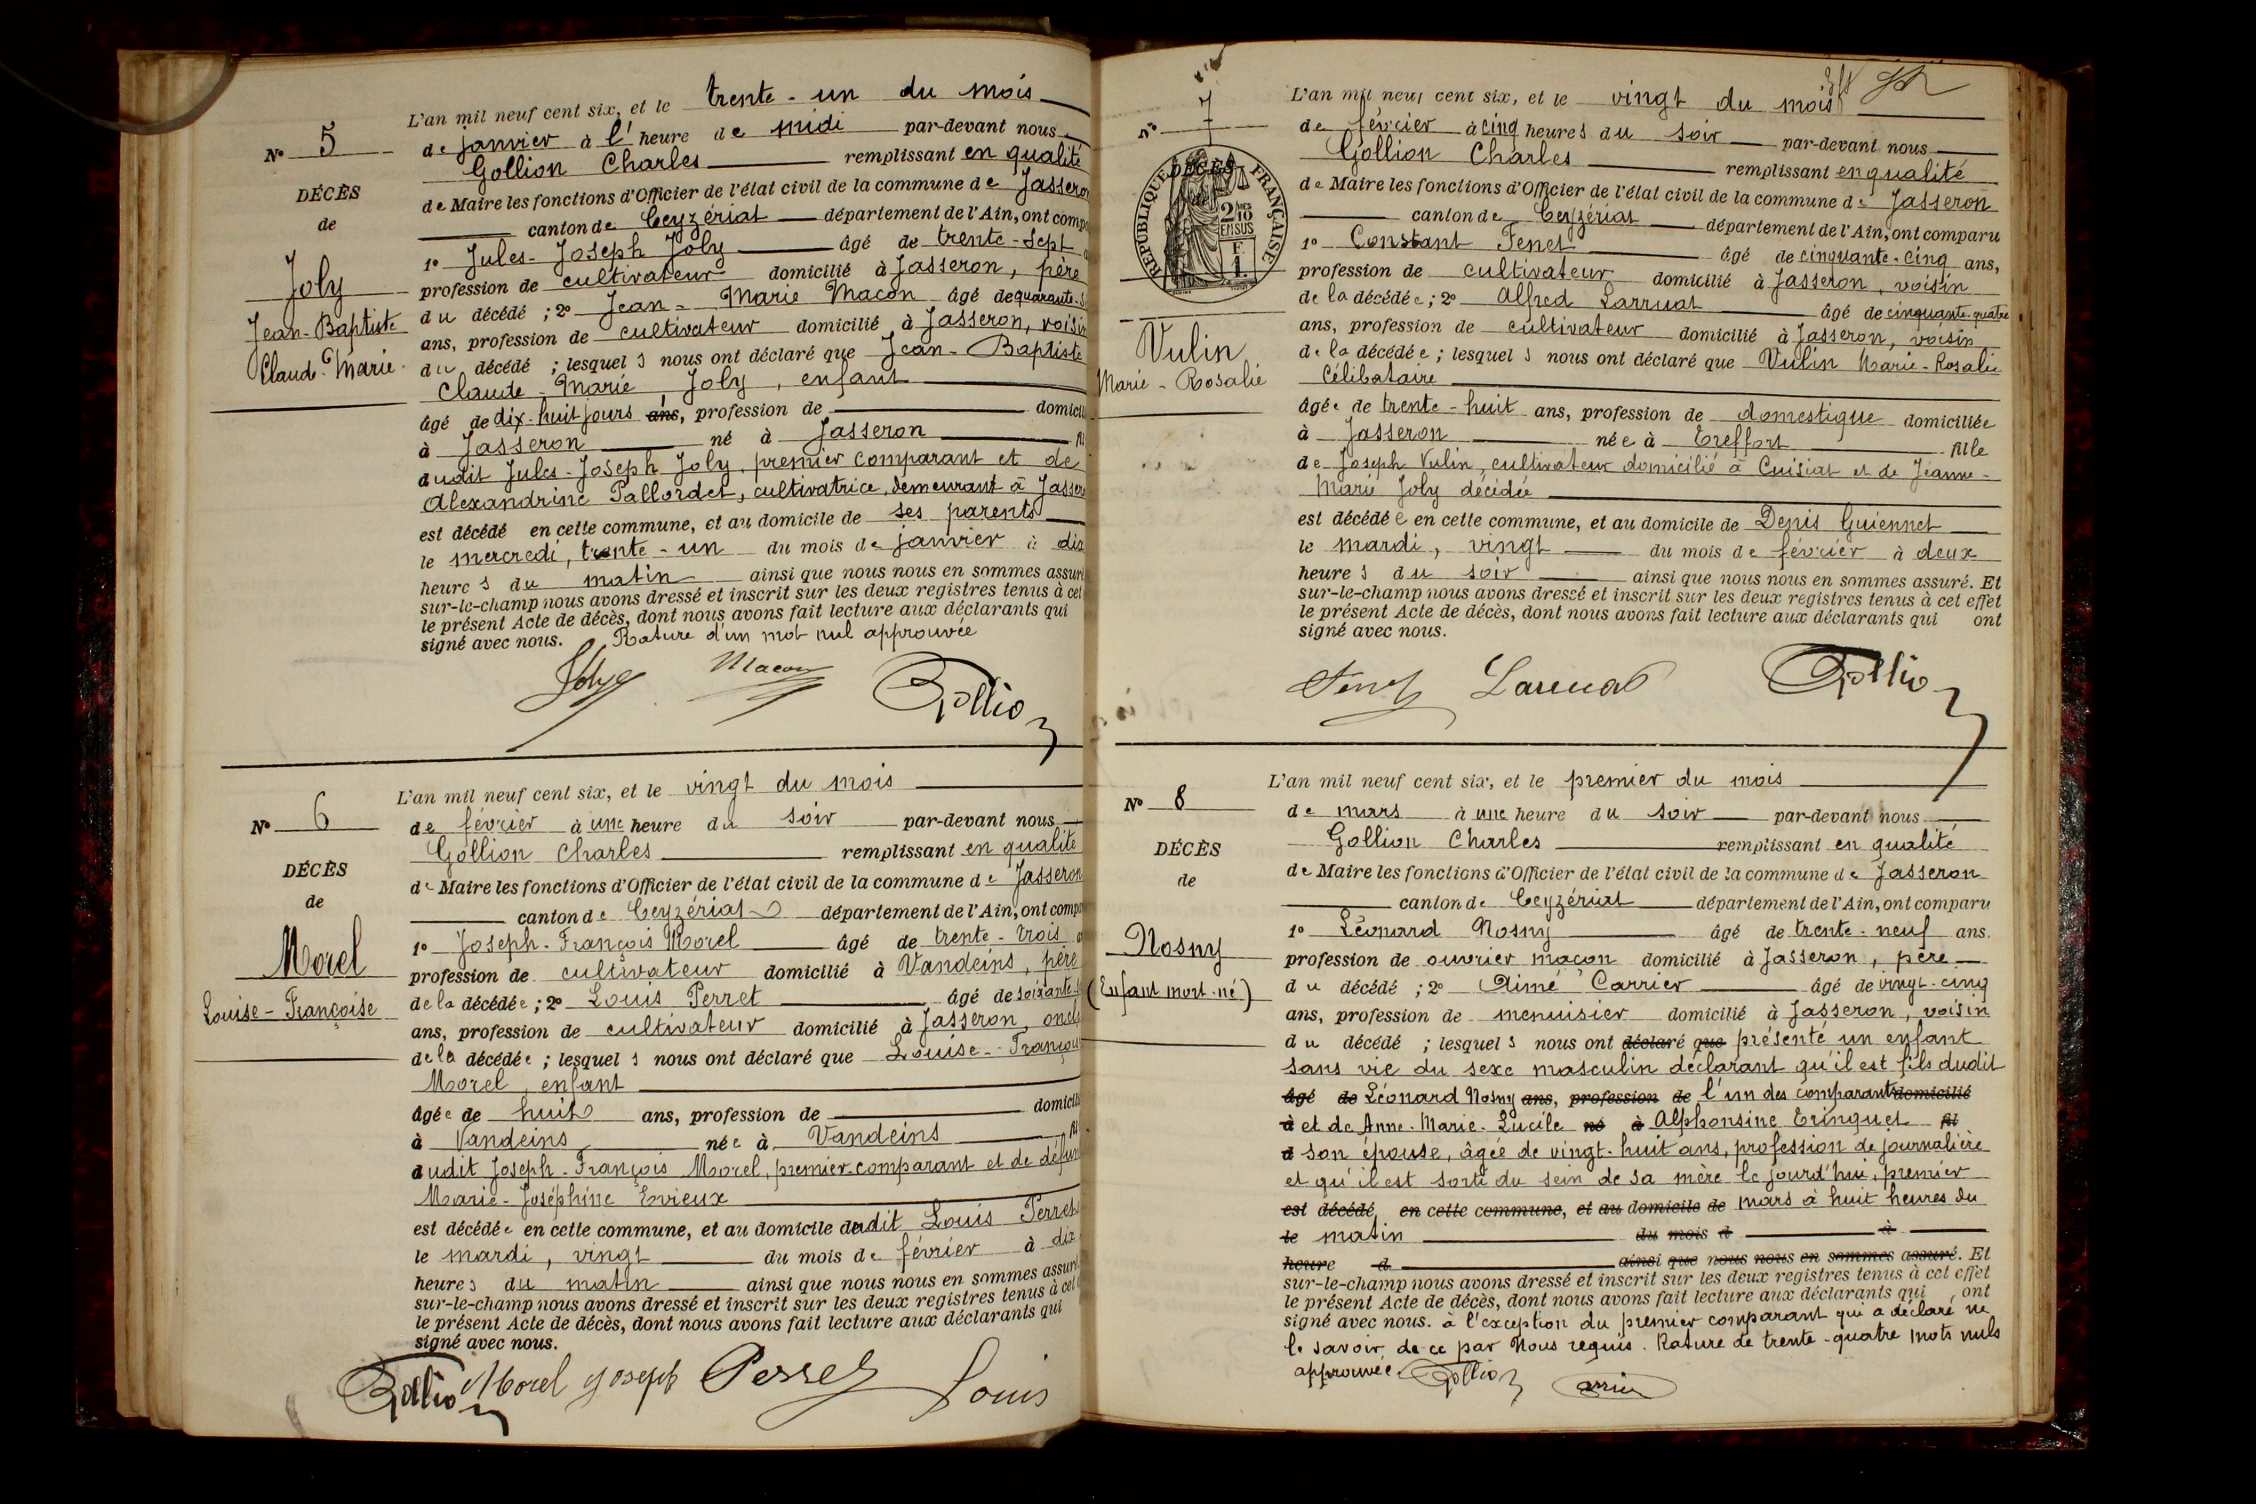 L'an mil neuf cent six, et le trente-un du mois
N° 5
de janvier à l'heure de midi par-devant nous
Gollion Charles remplissant en qualité
DÉCÈS
de Maire les fonctions d'Officier de l'état civil de la commune de Jasseron
de
canton de Ceyzériat département de l'Ain, ont comp
1° Jules-Joseph Joly âgé de trente-sept
Joly
profession de cultivateur domicilié à Jasseron, père
Jean-Baptiste
du décédé ; 2° Jean-Marie Macon âgé de quarante-
Claude-Marie
ans, profession de cultivateur domicilié à Jasseron, voisin
du décédé ; lesquels nous ont déclaré que Jean-Baptiste
Claude-Marie Joly, enfant
âgé de dix-huit jours ans, profession de domicil
à Jasseron né à Jasseron
dudit Jules-Joseph Joly, premier comparant et de
Alexandrine Pallordet, cultivatrice, demeurant à Jasser
est décédé en cette commune, et au domicile de ses parents
le mercredi, trente-un du mois de janvier à dix
heures du matin ainsi que nous nous en sommes assur
sur-le-champ nous avons dressé et inscrit sur les deux registres tenus à cet
le présent Acte de décès, dont nous avons fait lecture aux déclarants qui
signé avec nous. Rature d'un mot nul approuvée
Joly Macon Gollion
L'an mil neuf cent six, et le vingt du mois
N° 6
de février à une heure du soir par-devant nous
Gollion Charles remplissant en qualité
DÉCÈS
de Maire les fonctions d'Officier de l'état civil de la commune de Jasseron
de
canton de Ceyzériat département de l'Ain, ont comp
Morel
1° Joseph-François Morel âgé de trente-trois
profession de cultivateur domicilié à Vandeins, père
Louise-Françoise
de la décédée ; 2° Louis Perret âgé de soixante-
ans, profession de cultivateur domicilié à Jasseron, oncle
de la décédée ; lesquels nous ont déclaré que Louise-Françoise
Morel, enfant
âgée de huit ans, profession de domicili
à Vandeins née à Vandeins
dudit Joseph-François Morel, premier comparant et de défun
Marie-Joséphine Evieux
est décédée en cette commune, et au domicile dudit Louis Perret
le mardi, vingt du mois de février à dix
heures du matin ainsi que nous nous en sommes assur
sur-le-champ nous avons dressé et inscrit sur les deux registres tenus à cet
le présent Acte de décès, dont nous avons fait lecture aux déclarants qui
signé avec nous.
Gollion Morel Joseph Perret Louis
L'an mil neuf cent six, et le vingt du mois
N° 7
de février à cinq heures du soir par-devant nous
Gollion Charles remplissant en qualité
DÉCÈS
de
RÉPUBLIQUE FRANÇAISE
2/10 EN SUS
F 1.
de Maire les fonctions d'Officier de l'état civil de la commune de Jasseron
canton de Ceyzériat département de l'Ain, ont comparu
1° Constant Fenet âgé de cinquante-cinq ans,
profession de cultivateur domicilié à Jasseron, voisin
de la décédée ; 2° Alfred Larruat âgé de cinquante-quatre
Vulin
ans, profession de cultivateur domicilié à Jasseron, voisin
Marie-Rosalie
de la décédée ; lesquels nous ont déclaré que Vulin Marie-Rosalie
Célibataire
âgée de trente-huit ans, profession de domestique domiciliée
à Jasseron née à Treffort fille
de Joseph Vulin, cultivateur domicilié à Cuisiat et de Jeanne-
Marie Joly décédée
est décédée en cette commune, et au domicile de Denis Guiennet
le mardi, vingt du mois de février à deux
heures du soir ainsi que nous nous en sommes assuré. Et
sur-le-champ nous avons dressé et inscrit sur les deux registres tenus à cet effet
le présent Acte de décès, dont nous avons fait lecture aux déclarants qui ont
signé avec nous.
Fenet Larruat Gollion
L'an mil neuf cent six, et le premier du mois
N° 8
de mars à une heure du soir par-devant nous
Gollion Charles remplissant en qualité
DÉCÈS
de Maire les fonctions d'Officier de l'état civil de la commune de Jasseron
de
canton de Ceyzériat département de l'Ain, ont comparu
1° Léonard Nosny âgé de trente-neuf ans.
Nosny
profession de ouvrier maçon domicilié à Jasseron, père
(Enfant mort-né)
du décédé ; 2° Aimé Carrier âgé de vingt-cinq
ans, profession de menuisier domicilié à Jasseron, voisin
du décédé ; lesquels nous ont déclaré que présenté un enfant
sans vie du sexe masculin déclarant qu'il est fils dudit
âgé de Léonard Nosny ans, profession de l'un des comparants domicilié
à et de Anne-Marie-Lucile né à Alphonsine Tringuet fil
d son épouse, âgée de vingt-huit ans, profession de journalière
et qu'il est sorti du sein de sa mère le jourd'hui, premier
est décédé en cette commune, et au domicile de mars à huit heures du
le matin du mois d à
heure d ainsi que nous nous en sommes assuré. Et
sur-le-champ nous avons dressé et inscrit sur les deux registres tenus à cet effet
le présent Acte de décès, dont nous avons fait lecture aux déclarants qui ont
signé avec nous. à l'exception du premier comparant qui a déclaré ne
le savoir, de ce par Nous requis. Rature de trente-quatre mots nuls
approuvée. Gollion Carrier